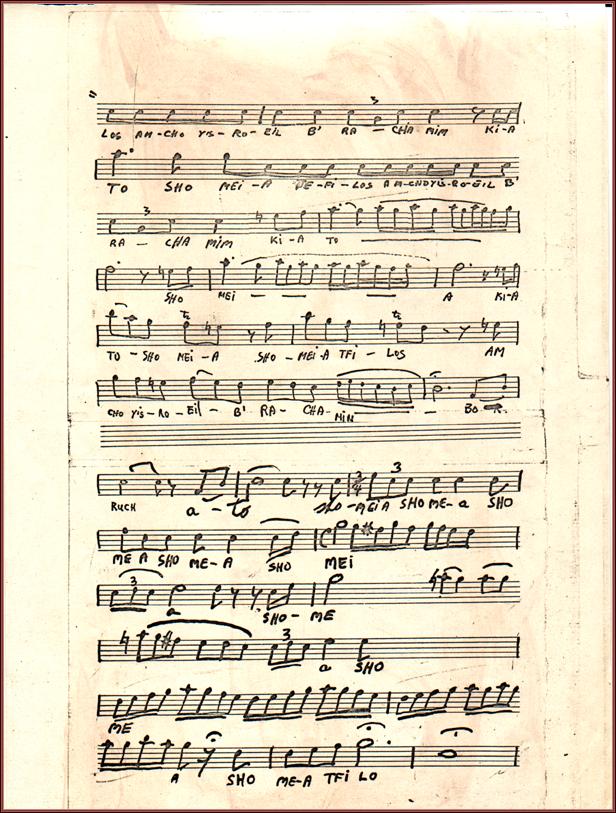 LOS AM-CHO YIS-RO-EIL B' RA-CHA MIM KI-A
TO SHO MEI-A TE-FI-LOS AM-CHO YIS-RO-EIL B'
RA-CHA MIM KI-A TO
SHO MEI A KI-A
TO-SHO MEI-A SHO-MEI-A TFI-LOS AM
CHO YIS-RO-EIL-B' RA-CHA-MIM BO-R.
RUCH a-to SHO-MEIA SHO ME-a SHO
ME A SHO ME-A SHO MEI
a SHO-ME
a SHO
ME
A SHO ME-A TFI LO